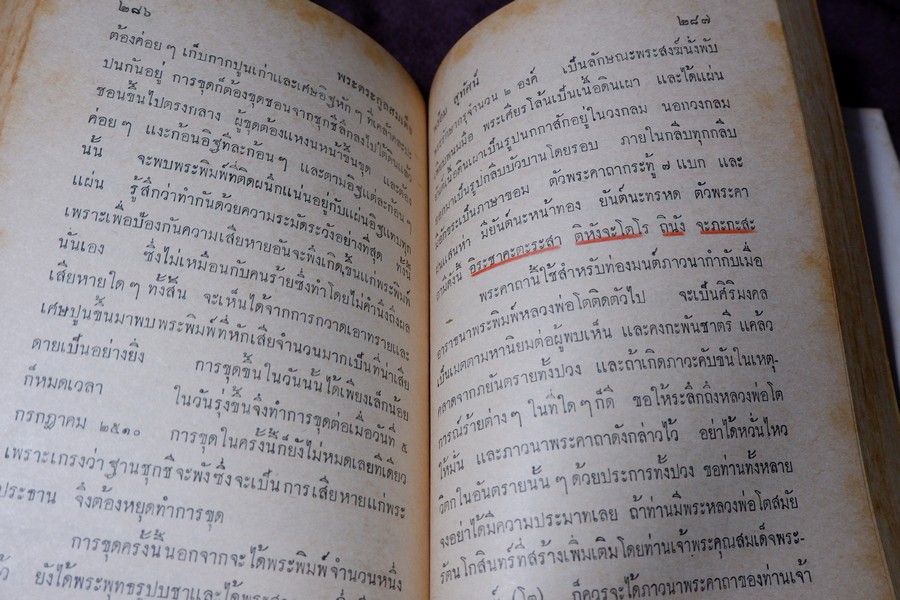 ๒๘๖
ต้องค่อย ๆ เก็บกากปูนเก่าและเศษอิฐหัก ๆ ที่เคล้า
ปนกันอยู่ การขุดก็ต้องขุดซอนจากชุกชีลึกลงไปใต้
ซอนขึ้นไปตรงกลาง ผู้ขุดต้องแหงนหน้าขึ้นขุด และต้อง
ค่อย ๆ แงะก้อนอิฐทีละก้อน ๆ และตามอิฐแต่ละก้อน ๆ
นั้น จะพบพระพิมพ์ที่ติดผนึกแน่นอยู่กับแผ่นอิฐแทบทุก
แผ่น รู้สึกว่าทำกันด้วยความระมัดระวังอย่างที่สุด ทั้งนี้
เพราะเพื่อป้องกันความเสียหายอันจะพึงเกิดขึ้นแก่พระพิมพ์
นั่นเอง ซึ่งไม่เหมือนกับคนร้ายซึ่งทำโดยไม่คำนึงถึงผล
เสียหายใด ๆ ทั้งสิ้น จะเห็นได้จากการกวาดเอาทรายและ
เศษปูนขึ้นมาพบพระพิมพ์ที่หักเสียจำนวนมากเป็นที่น่าเสีย
ดายเป็นอย่างยิ่ง การขุดขึ้นในวันนั้นได้เพียงเล็กน้อย
ก็หมดเวลา ในวันรุ่งขึ้นจึงทำการขุดต่อเมื่อวันที่ ๕
กรกฎาคม ๒๕๑๐ การขุดในครั้งนี้ก็ยังไม่หมดเลยทีเดียว
เพราะเกรงว่าฐานชุกชีจะพังซึ่งจะเป็นการเสียหายแก่พระ
ประธาน จึงต้องหยุดทำการขุด
การขุดครั้งนี้นอกจากจะได้พระพิมพ์จำนวนหนึ่ง
ยังได้พระพุทธรูปบูชาและได้
๒๘๗
สุทัศน์
จำนวน ๒ องค์ เป็นลักษณะพระสงฆ์นั่งพับ
พนมมือ พระเศียรโล้นเป็นเนื้อดินเผา และได้แผ่น
เนื้อดินเผาเป็นรูปนกกาสักอยู่ในวงกลม นอกวงกลม
เป็นรูปกลีบบัวบานโดยรอบ ภายในกลีบทุกกลีบ
เป็นภาษาขอม ตัวพระคาถากระทู้ ๗ แบก และ
มียันต์นะหน้าทอง ยันต์นะทรหด ตัวพระคา
ถามดังนี้ อิระชาคะตะระสา ติหังจะโตโร ถินัง จะภะกะสะ
พระคาถานี้ใช้สำหรับท่องมนต์ภาวนากำกับเมื่อ
อาราธนาพระพิมพ์หลวงพ่อโตติดตัวไป จะเป็นศิริมงคล
เป็นเมตตามหานิยมต่อผู้พบเห็น และคงกะพันชาตรี แคล้ว
คลาดจากภยันตรายทั้งปวง และถ้าเกิดภาวะคับขันในเหตุ-
การณ์ร้ายต่าง ๆ ในที่ใด ๆ ก็ดี ขอให้ระลึกถึงหลวงพ่อโต
ให้มั่น และภาวนาพระคาถาดังกล่าวไว้ อย่าได้หวั่นไหว
วิตกในอันตรายนั้น ๆ ด้วยประการทั้งปวง ขอท่านทั้งหลาย
จงอย่าได้มีความประมาทเลย ถ้าท่านมีพระหลวงพ่อโตสมัย
รัตนโกสินทร์ที่สร้างเพิ่มเติมโดยท่านเจ้าพระคุณสมเด็จพระ-
(โต) ก็ควรจะได้ภาวนาพระคาถาของท่านเจ้า